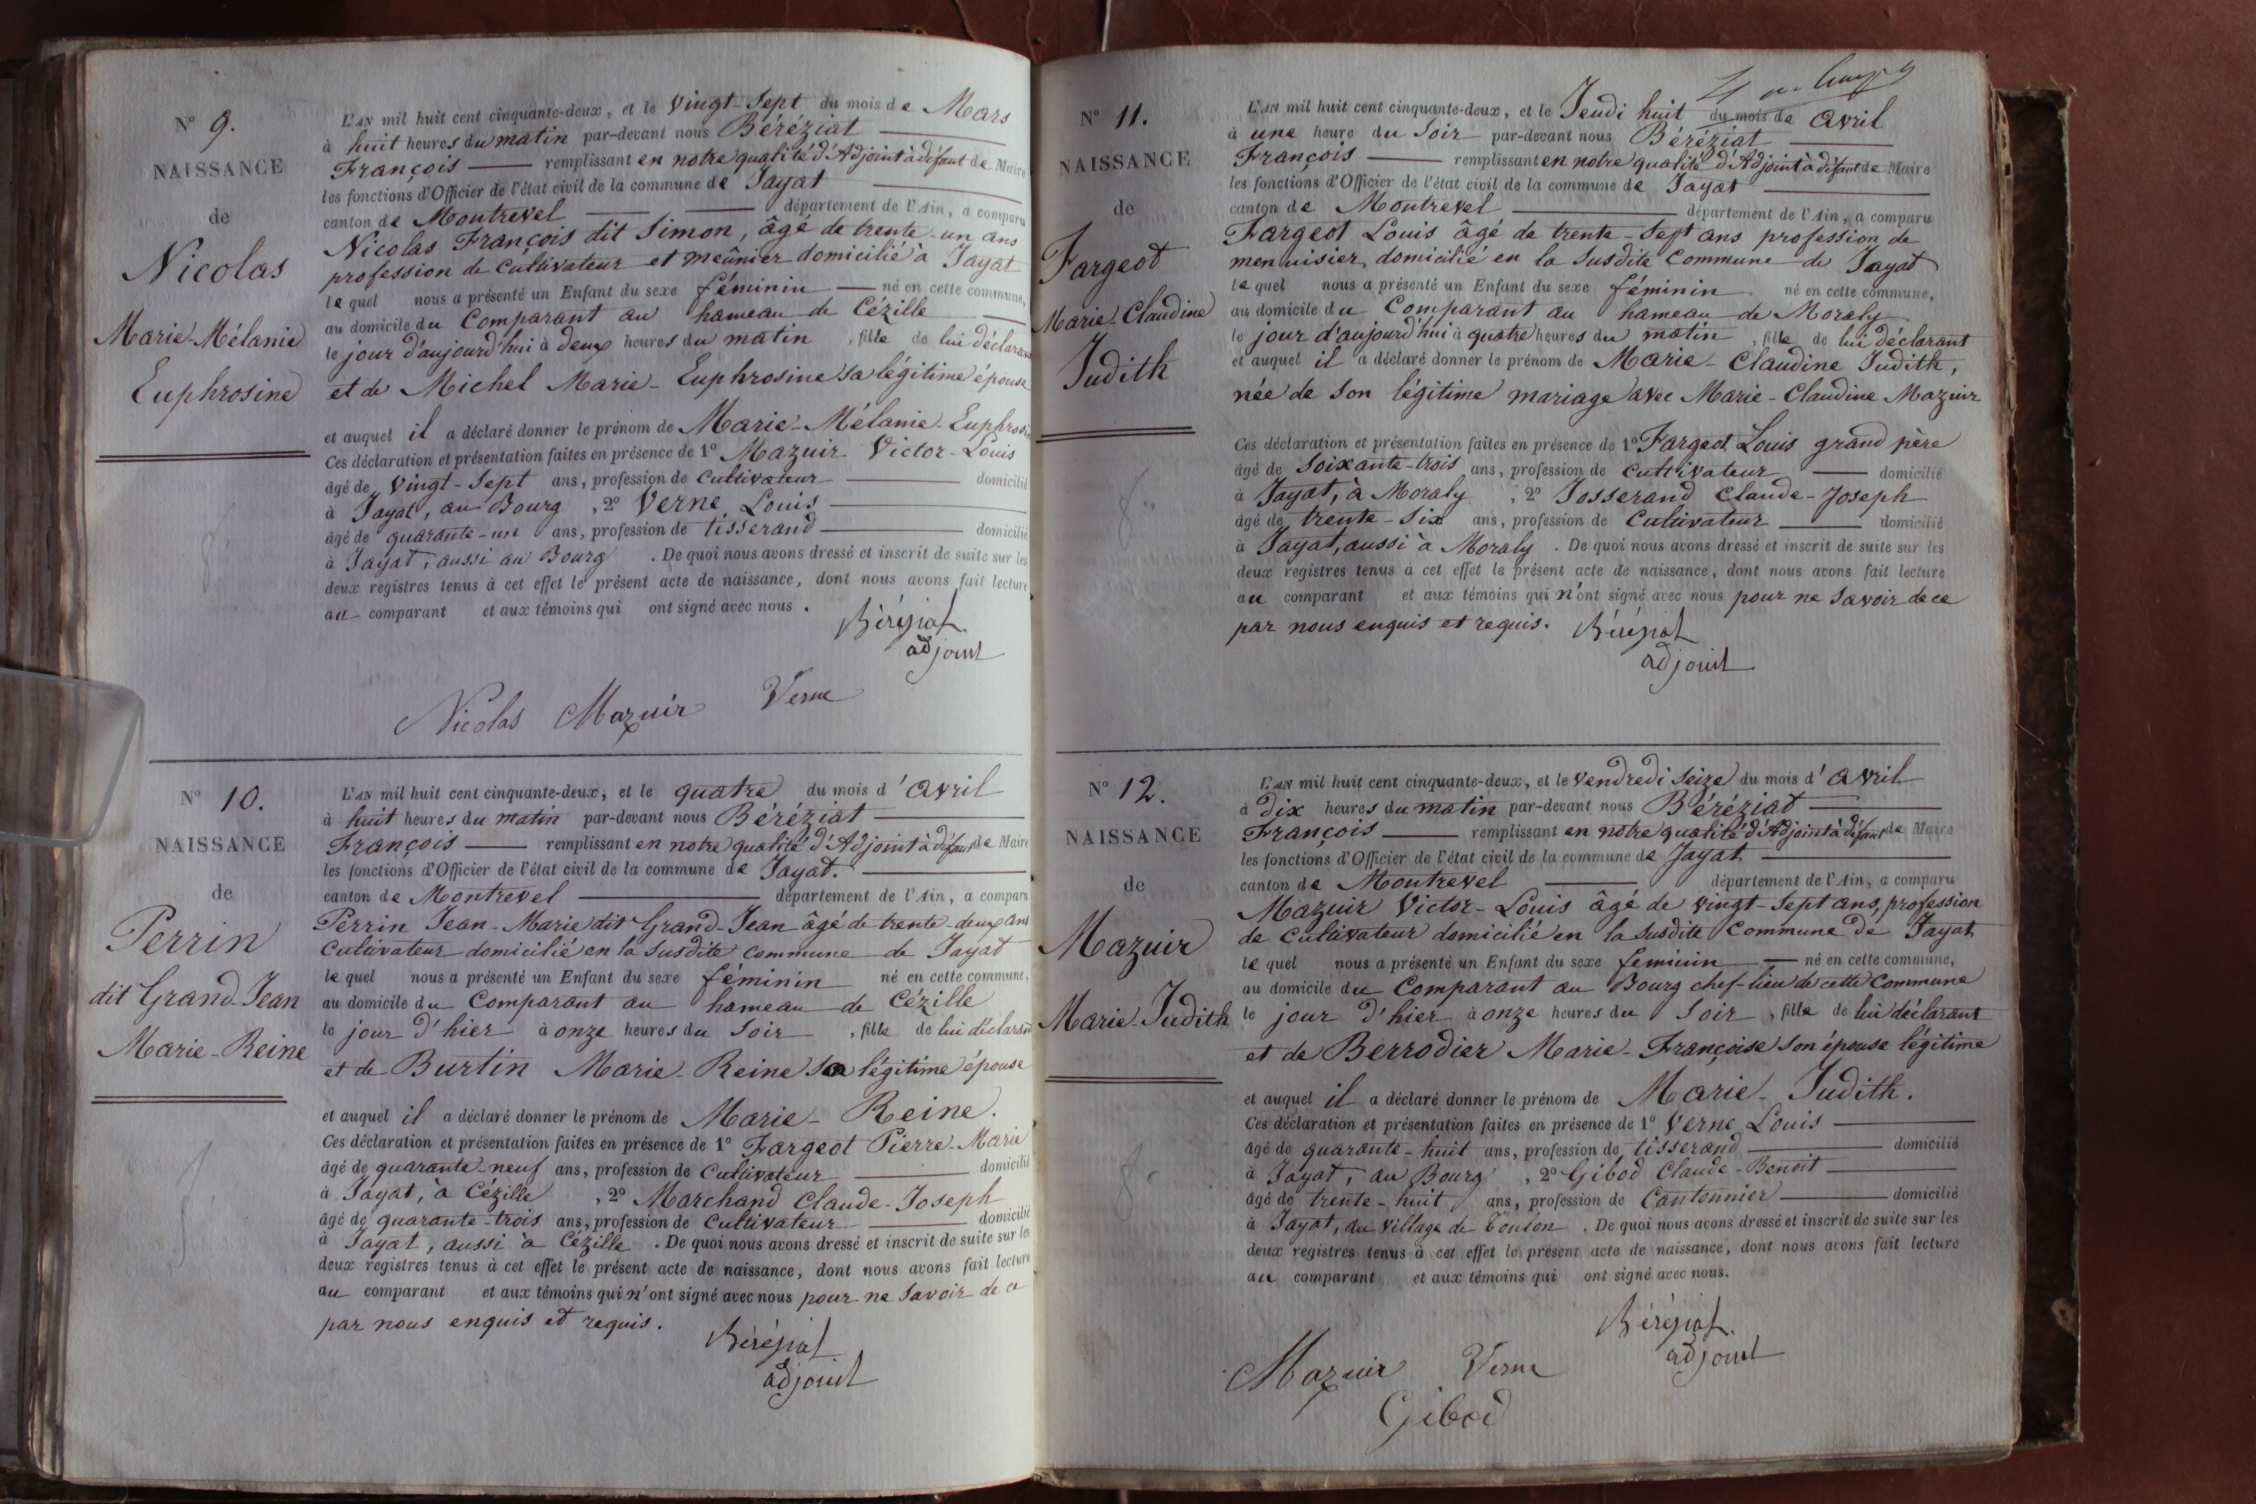 N° 9.
NAISSANCE
de
Nicolas
Marie-Mélanie
Euphrosine
L'AN mil huit cent cinquante-deux, et le Vingt-Sept du mois de Mars
à huit heures du matin par-devant nous Béréziat
François remplissant en notre qualité d'Adjoint à défaut de Maire
les fonctions d'Officier de l'état civil de la commune de Jayat
canton de Montrevel département de l'Ain, a comparu
Nicolas François dit Simon, âgé de trente-un ans
profession de cultivateur et meûnier domicilié à Jayat
lequel nous a présenté un Enfant du sexe féminin né en cette commune,
au domicile du Comparant au hameau de Cézille
le jour d'aujourd'hui à deux heures du matin, fille de lui déclarant
et de Michel Marie-Euphrosine sa légitime épouse
et auquel il a déclaré donner le prénom de Marie-Mélanie-Euphrosine
Ces déclaration et présentation faites en présence de 1° Mazuir Victor-Louis
âgé de Vingt-Sept ans, profession de cultivateur domicilié
à Jayat, au Bourg, 2° Verne Louis
âgé de quarante-un ans, profession de tisserand domicilié
à Jayat, aussi au Bourg. De quoi nous avons dressé et inscrit de suite sur les
deux registres tenus à cet effet le présent acte de naissance, dont nous avons fait lecture
au comparant et aux témoins qui ont signé avec nous.
Béréziat
adjoint
Nicolas Mazuir Verne
N° 10.
NAISSANCE
de
Perrin
dit Grand-Jean
Marie-Reine
L'AN mil huit cent cinquante-deux, et le quatre du mois d'avril
à huit heures du matin par-devant nous Béréziat
François remplissant en notre qualité d'Adjoint à défaut de Maire
les fonctions d'Officier de l'état civil de la commune de Jayat.
canton de Montrevel département de l'Ain, a comparu
Perrin Jean-Marie dit Grand-Jean âgé de trente-deux ans
cultivateur domicilié en la susdite commune de Jayat
lequel nous a présenté un Enfant du sexe féminin né en cette commune,
au domicile du Comparant au hameau de Cézille
le jour d'hier à onze heures du Soir, fille de lui déclarant
et de Burtin Marie-Reine sa légitime épouse
et auquel il a déclaré donner le prénom de Marie-Reine.
Ces déclaration et présentation faites en présence de 1° Fargeot Pierre-Marie
âgé de quarante-neuf ans, profession de cultivateur domicilié
à Jayat, à Cézille, 2° Marchand Claude-Joseph
âgé de quarante-trois ans, profession de cultivateur domicilié
à Jayat, aussi à Cézille. De quoi nous avons dressé et inscrit de suite sur les
deux registres tenus à cet effet le présent acte de naissance, dont nous avons fait lecture
au comparant et aux témoins qui n'ont signé avec nous pour ne savoir de ce
par nous enquis et requis.
Béréziat
adjoint
N° 11.
NAISSANCE
de
Fargeot
Marie-Claudine
Judith
L'AN mil huit cent cinquante-deux, et le Jeudi huit du mois de avril
à une heure du Soir par-devant nous Béréziat
François remplissant en notre qualité d'Adjoint à défaut de Maire
les fonctions d'Officier de l'état civil de la commune de Jayat
canton de Montrevel département de l'Ain, a comparu
Fargeot Louis âgé de trente-Sept ans profession de
menuisier, domicilié en la susdite Commune de Jayat
lequel nous a présenté un Enfant du sexe féminin né en cette commune,
au domicile du Comparant au hameau de Moraly
le jour d'aujourd'hui à quatre heures du matin, fille de lui déclarant
et auquel il a déclaré donner le prénom de Marie-Claudine Judith,
née de son légitime mariage avec Marie-Claudine Mazuir
Ces déclaration et présentation faites en présence de 1° Fargeot Louis grand père
âgé de Soixante-trois ans, profession de cultivateur domicilié
à Jayat, à Moraly, 2° Josserand Claude-Joseph
âgé de trente-Six ans, profession de Cultivateur domicilié
à Jayat, aussi à Moraly. De quoi nous avons dressé et inscrit de suite sur les
deux registres tenus à cet effet le présent acte de naissance, dont nous avons fait lecture
au comparant et aux témoins qui n'ont signé avec nous pour ne Savoir de ce
par nous enquis et requis.
Béréziat
adjoint
N° 12.
NAISSANCE
de
Mazuir
Marie-Judith
L'AN mil huit cent cinquante-deux, et le vendredi Seize du mois d'avril
à Dix heures du matin par-devant nous Béréziat
François remplissant en notre qualité d'Adjoint à défaut de Maire
les fonctions d'Officier de l'état civil de la commune de Jayat
canton de Montrevel département de l'Ain, a comparu
Mazuir Victor-Louis âgé de vingt-Sept ans, profession
de cultivateur domicilié en la susdite Commune de Jayat
lequel nous a présenté un Enfant du sexe féminin né en cette commune,
au domicile du Comparant au Bourg chef-lieu de cette Commune
le jour d'hier à onze heures du Soir, fille de lui déclarant
et de Berrodier Marie-Françoise son épouse légitime
et auquel il a déclaré donner le prénom de Marie-Judith.
Ces déclaration et présentation faites en présence de 1° Verne Louis
âgé de quarante-huit ans, profession de tisserand domicilié
à Jayat, au Bourg, 2° Gibod Claude-Benoit
âgé de trente-huit ans, profession de Cantonnier domicilié
à Jayat, au Village de Toulon. De quoi nous avons dressé et inscrit de suite sur les
deux registres tenus à cet effet le présent acte de naissance, dont nous avons fait lecture
au comparant et aux témoins qui ont signé avec nous.
Béréziat
adjoint
Mazuir Verne
Gibod